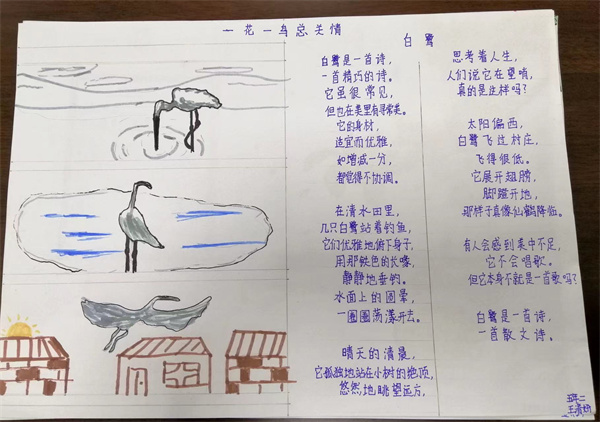 一花一鸟总关情
白鹭
白鹭是一首诗，
一首精巧的诗。
它虽很常见，
但也在美里有寻常美。
它的身材，
适宜而优雅，
如增减一分，
都觉得不协调。
在清水田里，
几只白鹭站着钓鱼，
它们优雅地俯下身子，
用那铁色的长喙，
静静地垂钓。
水面上的圆晕，
一圈圈荡漾开去。
晴天的清晨，
它孤独地站在小树的绝顶，
悠然地眺望远方，
思考着人生，
人们说它在望哨，
真的是这样吗？
太阳偏西，
白鹭飞过村庄，
飞得很低。
它展开翅膀，
脚蹬开地，
那样子真像仙鹤降临。
有人会感到美中不足，
它不会唱歌。
但它本身不就是一首歌吗？
白鹭是一首诗，
一首散文诗。